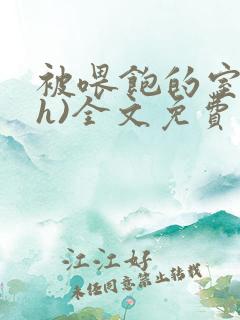 被喂饱的室
h)全文免费
江江好
未经同意禁止转载